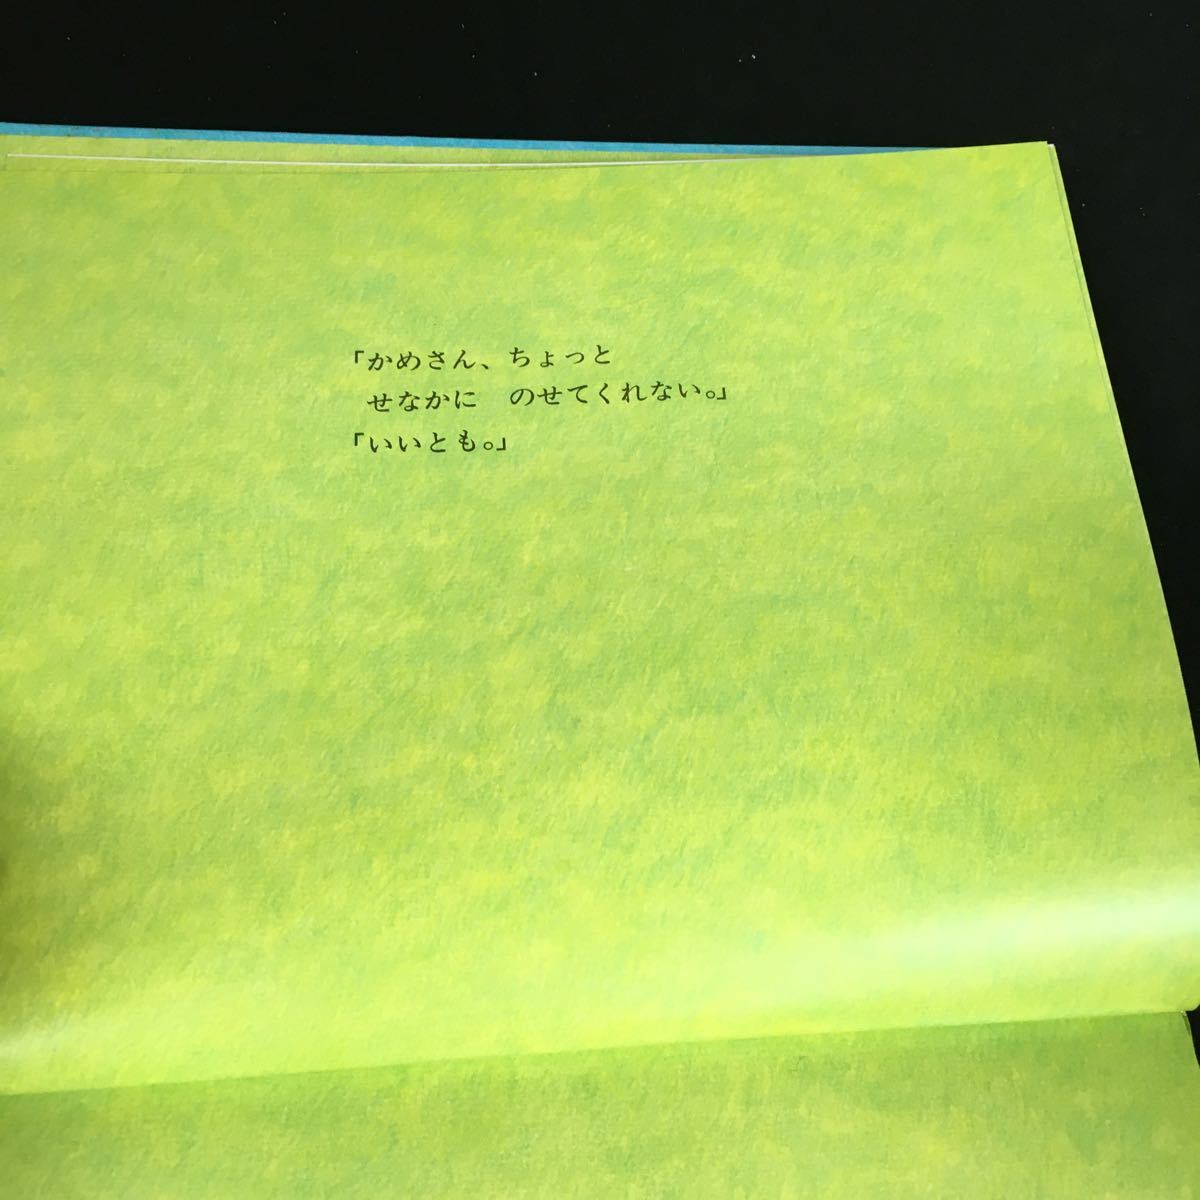 「かめさん、ちょっと
せなかに　のせてくれない。」
「いいとも。」